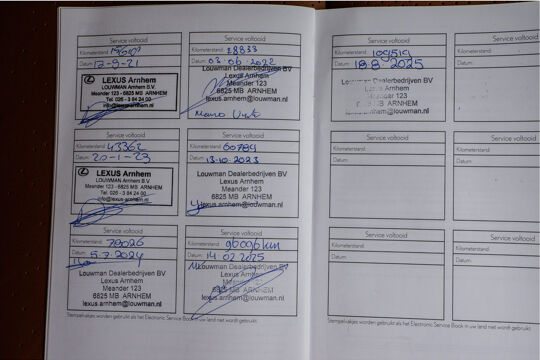 Service voltooid
Kilometerstand:
Datum: 13-9-21
LEXUS Arnhem
LOUWMAN Arnhem B.V.
Meander 123 - 6825 MS ARNHEM
Tel. 026 - 3 84 24 00
info@lexus-arnhem.nl
Service voltooid
Kilometerstand: 28833
Datum: 03-06-2022
Louwman Dealerbedrijven BV
Lexus Arnhem
Meander 123
6825 MB ARNHEM
lexus.arnhem@louwman.nl
Service voltooid
Kilometerstand: 43362
Datum: 20-1-23
LEXUS Arnhem
LOUWMAN Arnhem B.V.
Meander 123 - 6825 MS ARNHEM
Tel. 026 - 3 84 24 00
info@lexus-arnhem.nl
Service voltooid
Kilometerstand: 60789
Datum: 13-10-2023
Louwman Dealerbedrijven BV
Lexus Arnhem
Meander 123
6825 MB ARNHEM
lexus.arnhem@louwman.nl
Service voltooid
Kilometerstand: 79026
Datum: 5-7-2024
Louwman Dealerbedrijven BV
Lexus Arnhem
Meander 123
6825 MB ARNHEM
lexus.arnhem@louwman.nl
Service voltooid
Kilometerstand: 96096 km
Datum: 14 02 2025
Louwman Dealerbedrijven BV
Lexus Arnhem
Meander 123
6825 MB ARNHEM
lexus.arnhem@louwman.nl
Stempelvakjes worden gebruikt als het Electronic Service Book in uw land niet wordt gebruikt.
Service voltooid
Kilometerstand: 109519
Datum: 18 8 2025
Louwman Dealerbedrijven BV
Lexus Arnhem
Meander 123
6825 MB ARNHEM
lexus.arnhem@louwman.nl
Kilometerstand:
Datum:
Service voltooid
Kilometerstand:
Datum:
Kilometerstand:
Datum:
Service voltooid
Kilometerstand:
Datum:
Kilometerstand:
Datum:
Stempelvakjes worden gebruikt als het Electronic Service Book in uw land niet wordt gebruikt.